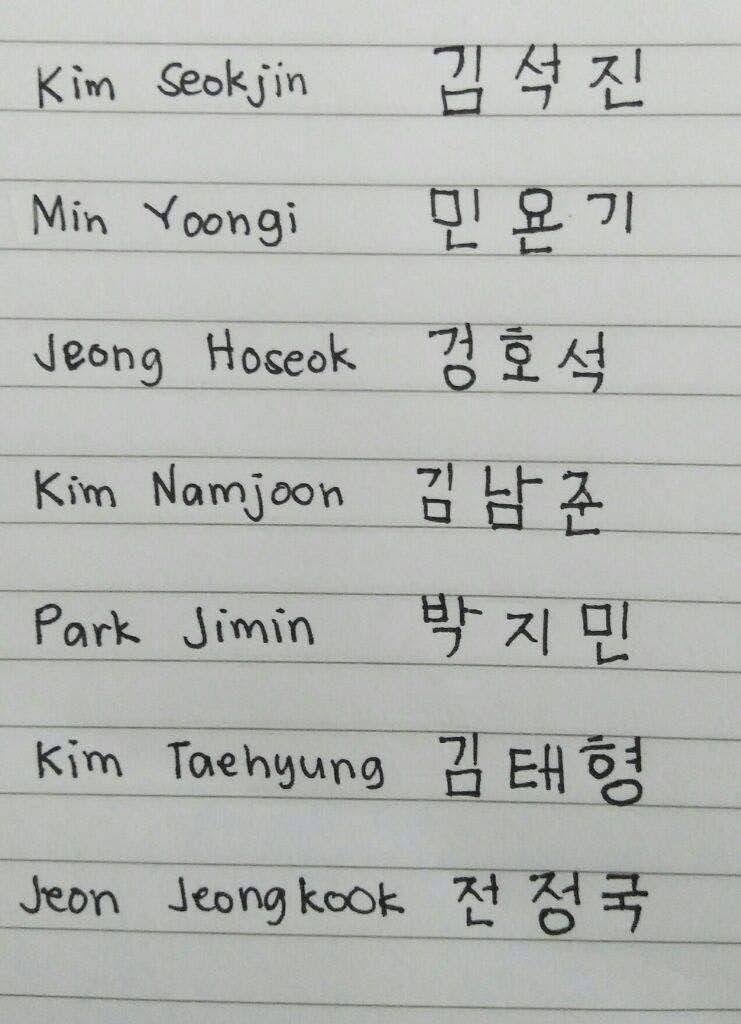 Kim Seokjin 김석진
Min Yoongi 민욘기
Jeong Hoseok 겅호석
Kim Namjoon 김남준
Park Jimin 박지민
Kim Taehyung 김태형
Jeon Jeongkook 전정국